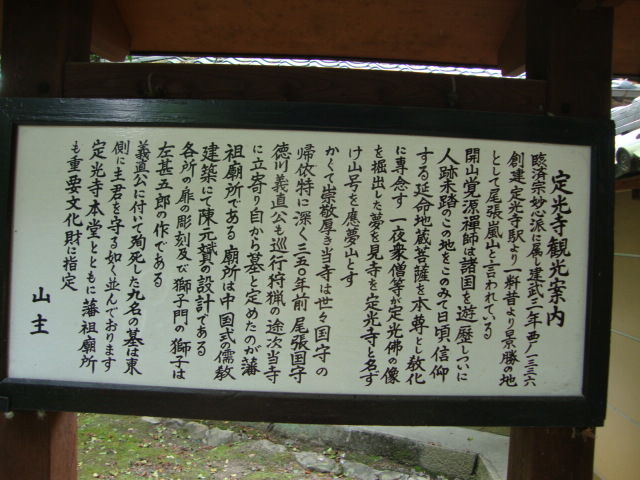 定光寺観光案内
臨済宗妙心派に属し建武三年西ノ一三三六
創建定光寺駅より一粁昔より景勝の地
として尾張嵐山と言われている
開山覚源禅師は諸国を遊歴しついに
人跡未踏のこの地をこのみて日頃信仰
する延命地蔵菩薩を本尊とし教化
に専念す一夜衆僧等が定光佛の像
を掘出した夢を見寺を定光寺と名ず
け山号を應夢山とす
かくて崇敬厚き当寺は世々国守の
帰依特に深く三五〇年前尾張国守
徳川義直公も巡行狩猟の途次当寺
に立寄り自から墓と定めたのが藩
祖廟所である廟所は中国式の儒教
建築にて陳元贇の設計である
各所の扉の彫刻及び獅子門の獅子は
左甚五郎の作である
義直公に付いて殉死した九名の墓は東
側に主君を守る如く並んでおります
定光寺本堂とともに藩祖廟所
も重要文化財に指定
山主